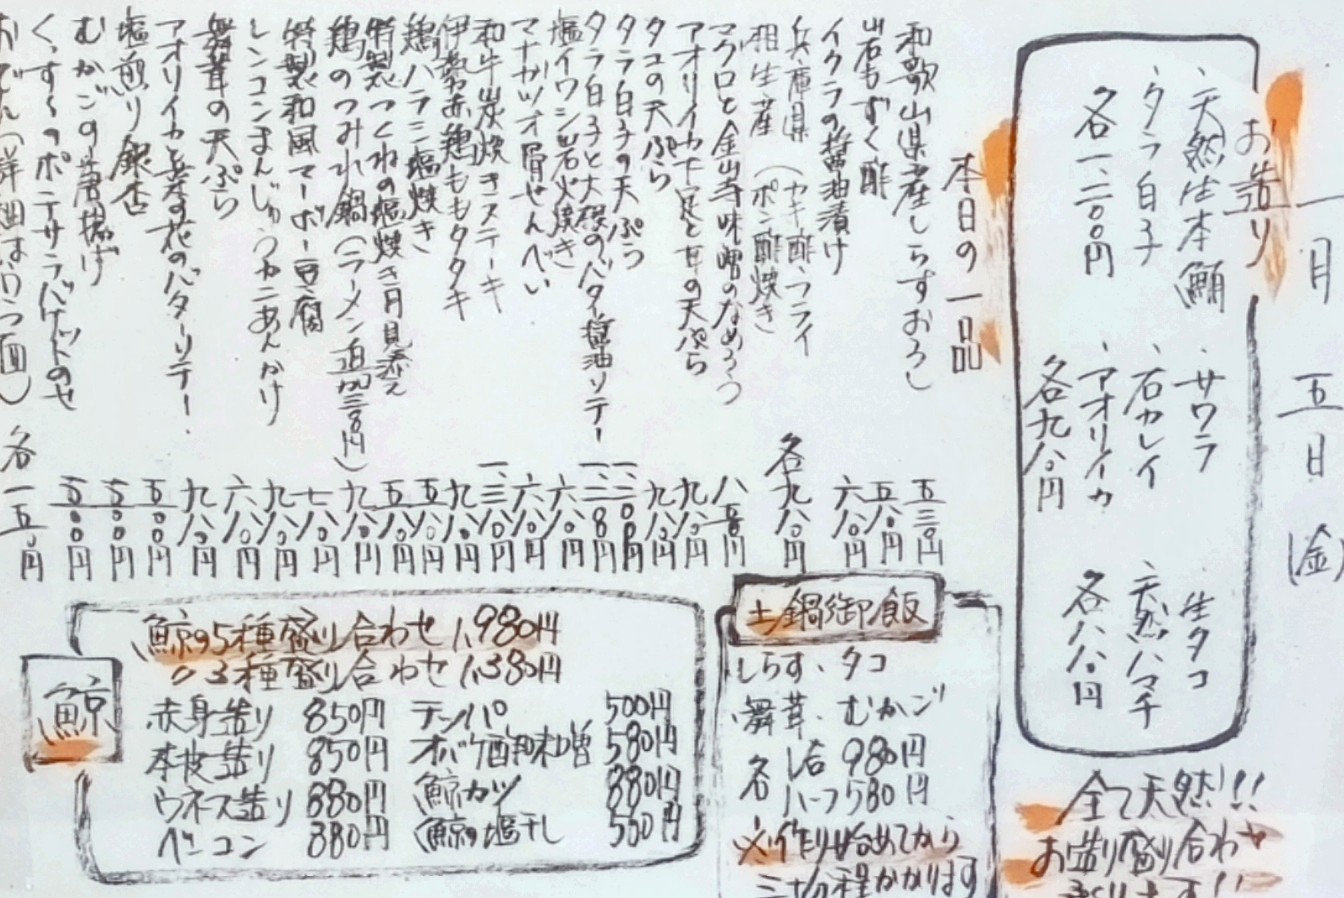 一月五日(金)
お造り
・天然生本鮪
・タラ白子
各一、二〇〇円
・サワラ
・石カレイ
・アオリイカ
各九八〇円
・生タコ
・天然ハマチ
各八八〇円
全て天然!!
お造り盛り合わせ
本日の一品
和歌山県産しらすおろし 五三〇円
岩もずく酢 五八〇円
イクラの醤油漬け 六八〇円
兵庫県相生産(カキ酢・フライ ポン酢焼き 各九八〇円
マグロと金山寺味噌のなめろう
アオリイカ下足と甘の天ぷら 九八〇円
タコの天ぷら 九八〇円
タラ白子の天ぷら
タラ白子と大根のバター醤油ソテー
塩イワシ岩火焼き 六八〇円
マナガツオ骨せんべい 六八〇円
和牛炭焼きステーキ
伊勢赤鶏ももタタキ 九八〇円
鶏ハラミ塩焼き 五八〇円
特製つくねの塩焼き月見添え 五八〇円
鶏のつみれ鍋(ラーメン追加三三〇円) 九八〇円
特製和風マーボー豆腐 七八〇円
レンコンまんじゅうカニあんかけ 九八〇円
舞茸の天ぷら 六八〇円
アオリイカと菜の花のバターソテー! 九八〇円
塩煎り銀杏 五〇〇円
むかごの素揚げ 五〇〇円
くん玉のポテサラバゲットのせ
おでん(詳細はウラ面) 各一五〇円
土鍋御飯
しらす・タコ
舞茸・むかご
各 1合 980円
ハーフ580円
※作り始めてから
三十分程かかります
鯨
鯨の5種盛り合わせ 1,980円
〃3種盛り合わせ 1,380円
赤身造り 850円
本皮造り 850円
ウネス造り 880円
ベーコン 880円
テッパ 500円
オバケ酢味噌 580円
鯨カツ 880円
鯨の塩干し 500円